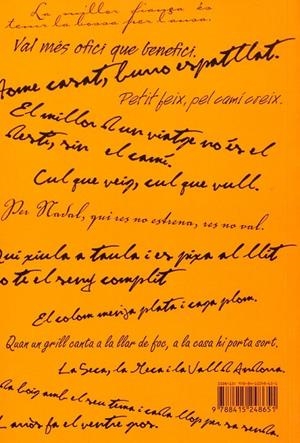 La millor fiança és
tenir la bossa per l'ansa.
Val més ofici que benefici.
Home casat, burro espatllat.
Petit feix, pel camí creix.
El millor d'un viatge no és el
destí, sin el camí.
Cul que veig, cul que vull.
Per Nadal, qui res no estrena, res no val.
Qui xiula a taula i es pixa al llit
no té el seny complit
El colom menja plata i caga plom.
Quan un grill canta a la llar de foc, a la casa hi porta sort.
La Seca, la Meca i la Vall d'Andorra.
boig amb el seu tema i cada llop per sa senda.
L'arròs fa el ventre gros.
9 788415 248651